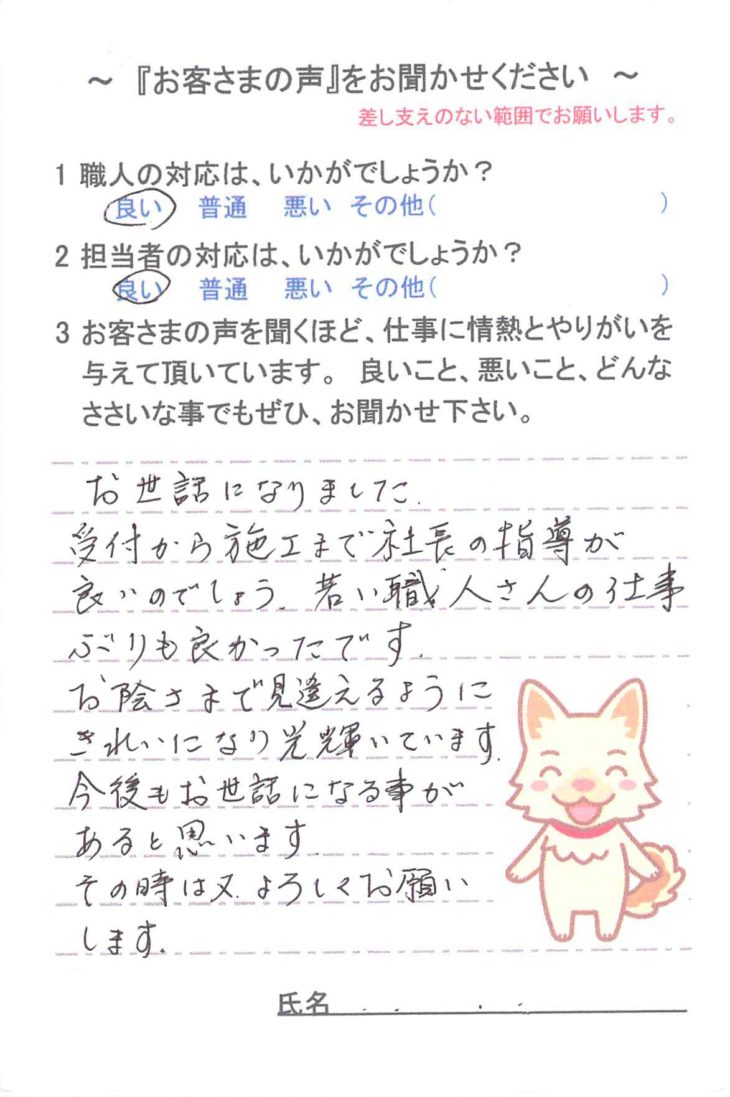 ～『お客さまの声』をお聞かせください ～
差し支えのない範囲でお願いします。
1 職人の対応は、いかがでしょうか？
良い 普通 悪い その他( )
2 担当者の対応は、いかがでしょうか？
良い 普通 悪い その他( )
3 お客さまの声を聞くほど、仕事に情熱とやりがいを
与えて頂いています。 良いこと、悪いこと、どんな
ささいな事でもぜひ、お聞かせ下さい。
お世話になりました.
受付から施工まで社長の指導が
良いのでしょう. 若い職人さんの仕事
ぶりも良かったです.
お陰さまで見違えるように
きれいになり光輝いています.
今後もお世話になる事が
あると思います.
その時は又.よろしくお願い
します.
氏名